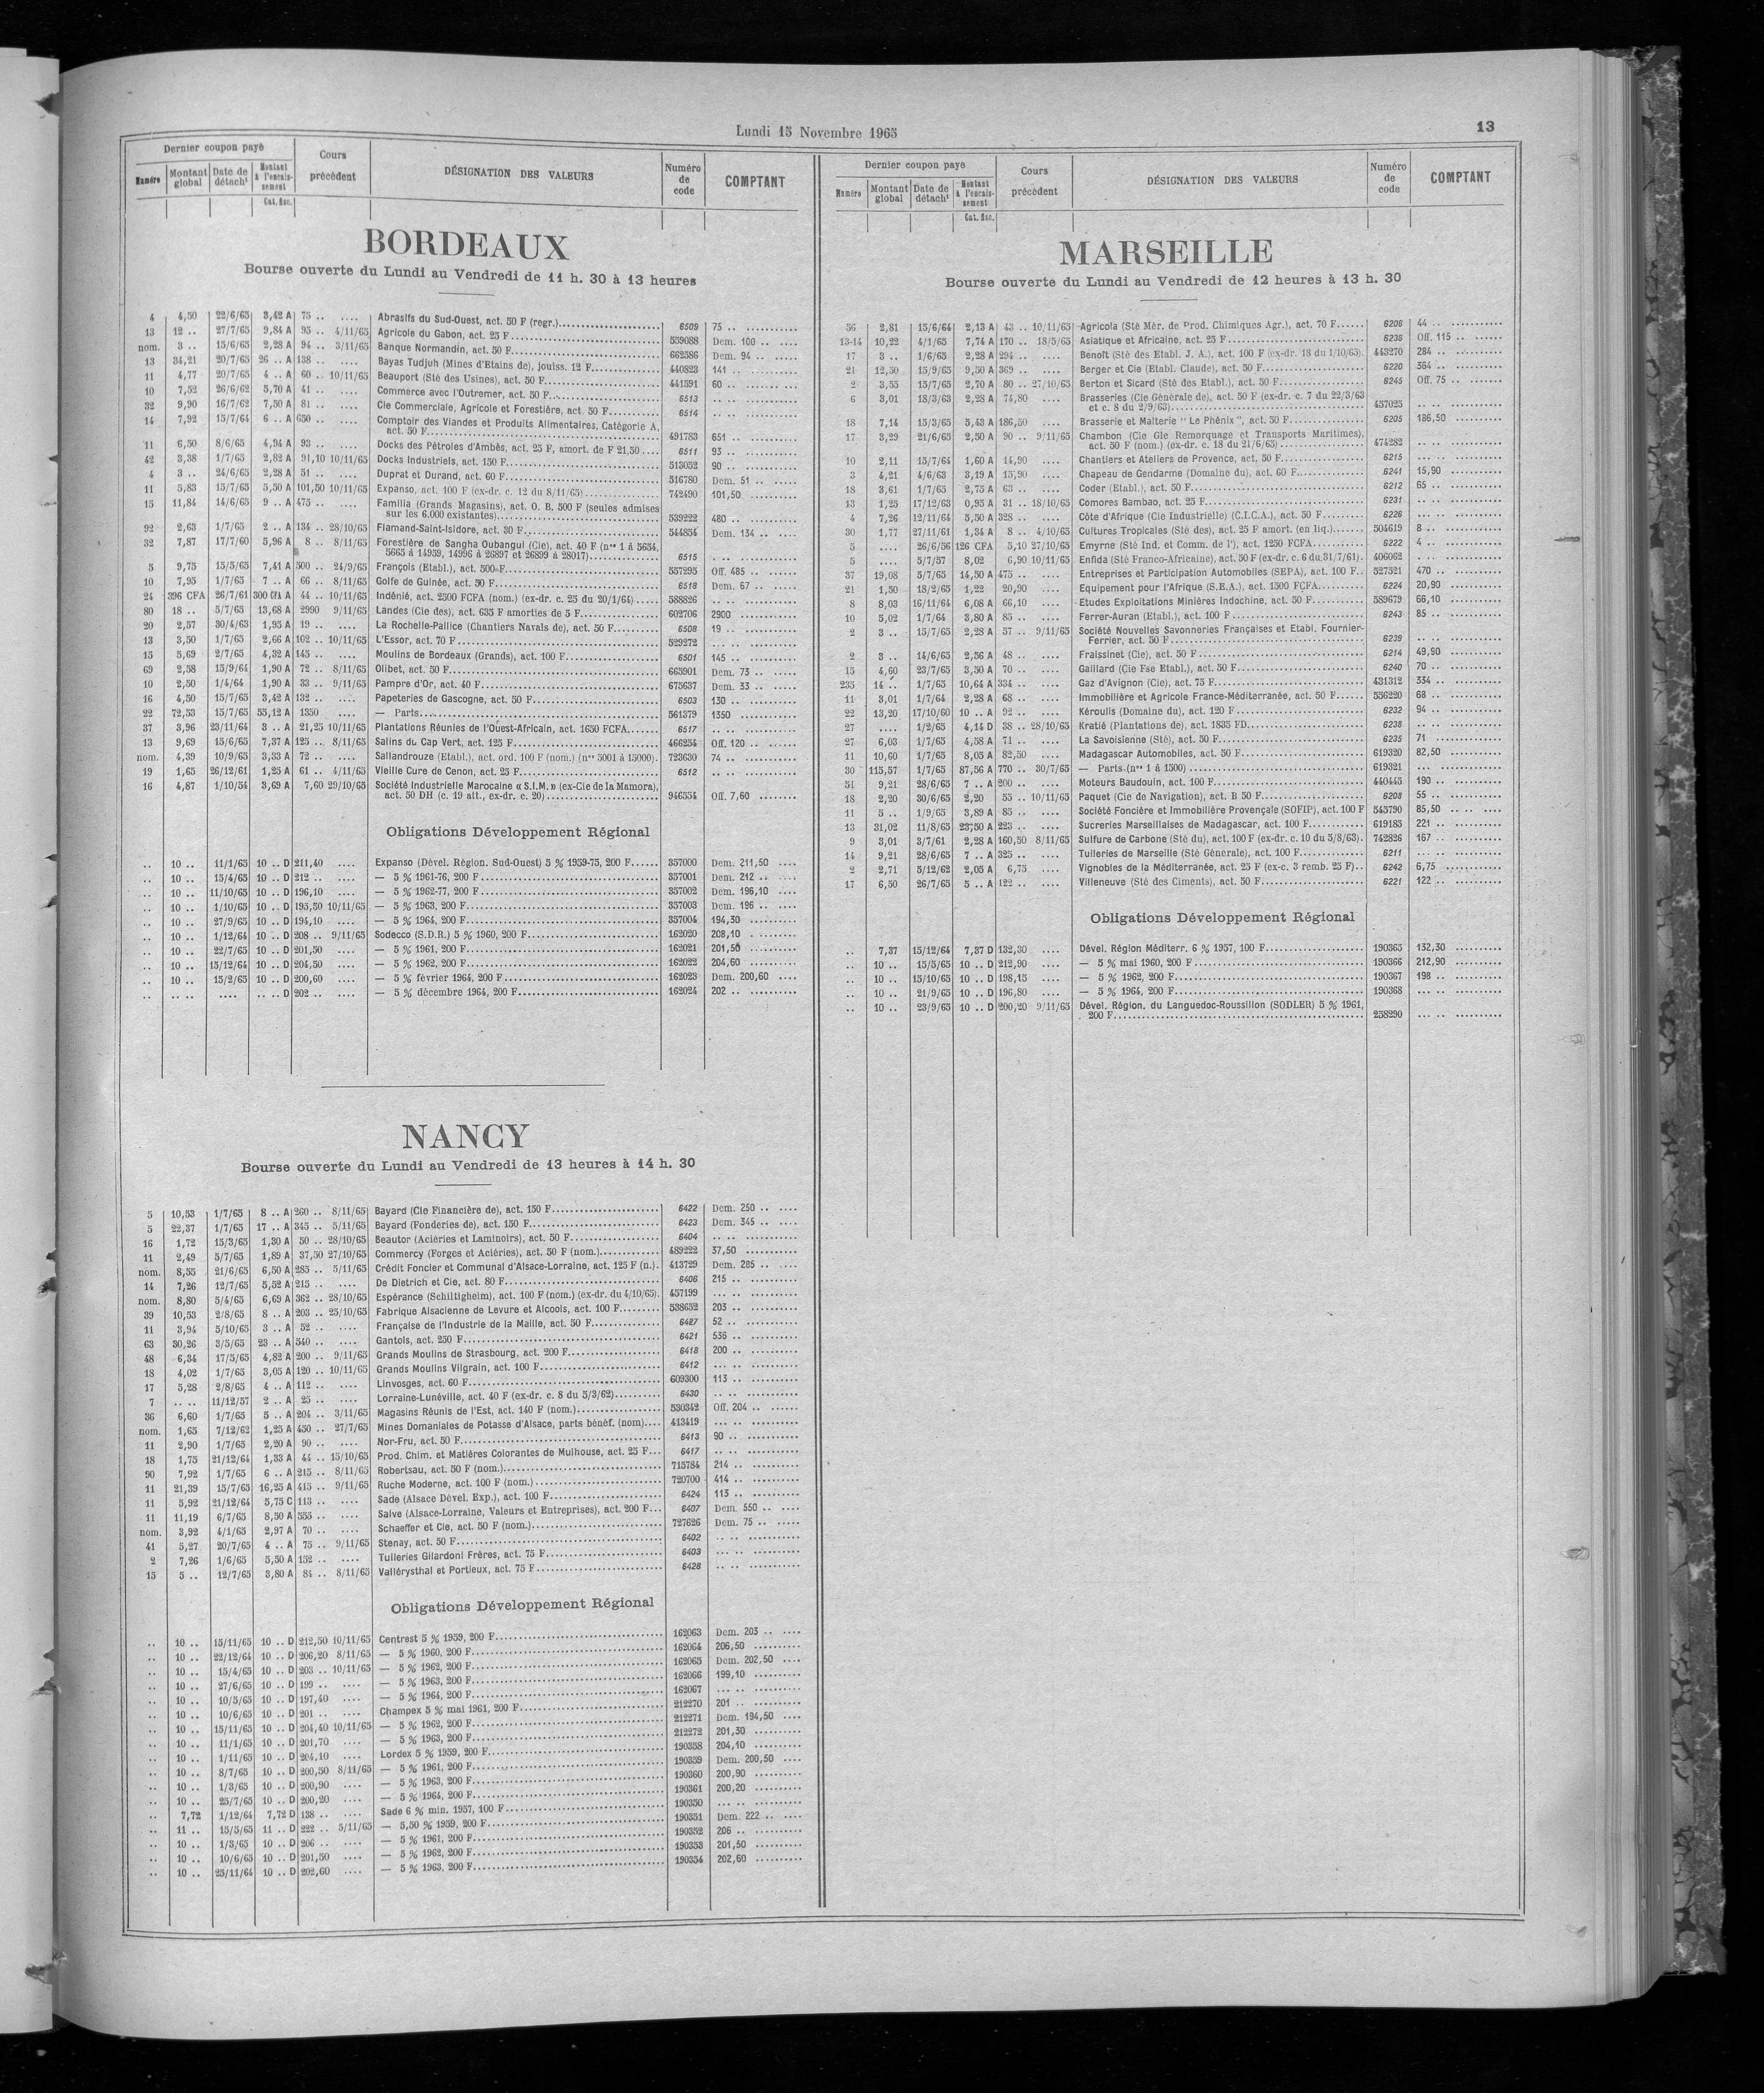 Lundi 15 Novembre 1965
13
Dernier coupon payé
Numéro | Montant global | Date de détach¹ | Montant à l'encaissement Cat. fisc. | Cours précédent | DÉSIGNATION DES VALEURS | Numéro de code | COMPTANT
BORDEAUX
Bourse ouverte du Lundi au Vendredi de 11 h. 30 à 13 heures
4 4,50 22/6/65 3,42 A 75 .. .... Abrasifs du Sud-Ouest, act. 50 F (regr.) 6509 75 ..
13 12 .. 27/7/65 9,84 A 95 .. 4/11/65 Agricole du Gabon, act. 25 F 559088 Dem. 100 ..
nom. 3 .. 15/6/65 2,28 A 94 .. 3/11/65 Banque Normandin, act. 50 F 662586 Dem. 94 ..
13 34,21 20/7/65 26 .. A 138 .. .... Bayas Tudjuh (Mines d'Etains de), jouiss. 12 F 440823 141 ..
11 4,77 20/7/65 4 .. A 60 .. 10/11/65 Beauport (Sté des Usines), act. 50 F 441591 60 ..
10 7,52 26/6/62 5,70 A 41 .. .... Commerce avec l'Outremer, act. 50 F 6513 .. ..
32 9,90 16/7/62 7,50 A 81 .. .... Cie Commerciale, Agricole et Forestière, act. 50 F 6514 .. ..
14 7,92 15/7/64 6 .. A 650 .. .... Comptoir des Viandes et Produits Alimentaires, Catégorie A,
act. 50 F 491783 651 ..
11 6,50 8/6/65 4,94 A 93 .. .... Docks des Pétroles d'Ambès, act. 25 F, amort. de F 21,50 6511 93 ..
42 3,38 1/7/65 2,82 A 91,10 10/11/65 Docks Industriels, act. 150 F 513052 90 ..
4 3 .. 24/6/65 2,28 A 51 .. .... Duprat et Durand, act. 60 F 516780 Dem. 51 ..
11 5,83 15/7/65 5,50 A 101,50 10/11/65 Expanso, act. 100 F (ex-dr. c. 12 du 8/11/65) 742490 101,50
15 11,84 14/6/65 9 .. A 475 .. .... Familia (Grands Magasins), act. O. B. 500 F (seules admises
sur les 6.000 existantes) 539222 480 ..
92 2,63 1/7/65 2 .. A 134 .. 28/10/65 Flamand-Saint-Isidore, act. 30 F 544854 Dem. 134 ..
32 7,87 17/7/60 5,96 A 8 .. 8/11/65 Forestière de Sangha Oubangui (Cie), act. 40 F (nos 1 à 5634,
5665 à 14959, 14996 à 26897 et 26899 à 28017) 6515 .. ..
5 9,75 15/5/65 7,41 A 500 .. 24/9/65 François (Etabl.), act. 500 F 557295 Off. 485 ..
10 7,95 1/7/65 7 .. A 66 .. 8/11/65 Golfe de Guinée, act. 50 F 6518 Dem. 67 ..
24 396 CFA 26/7/61 300 CFA A 44 .. 10/11/65 Indénié, act. 2500 FCFA (nom.) (ex-dr. c. 25 du 20/1/64) 588826 .. ..
80 18 .. 5/7/65 13,68 A 2990 9/11/65 Landes (Cie des), act. 635 F amorties de 5 F 602706 2900
20 2,57 30/4/63 1,95 A 19 .. .... La Rochelle-Pallice (Chantiers Navals de), act. 50 F 6508 19 ..
13 3,50 1/7/65 2,66 A 102 .. 10/11/65 L'Essor, act. 70 F 529272 .. ..
15 5,69 2/7/65 4,32 A 145 .. .... Moulins de Bordeaux (Grands), act. 100 F 6501 145 ..
69 2,58 15/9/64 1,90 A 72 .. 8/11/65 Olibet, act. 50 F 663901 Dem. 73 ..
10 2,50 1/4/64 1,90 A 33 .. 9/11/65 Pampre d'Or, act. 40 F 675637 Dem. 33 ..
16 4,50 15/7/65 3,42 A 132 .. .... Papeteries de Gascogne, act. 50 F 6503 130 ..
22 72,53 15/7/65 55,12 A 1350 .... — Parts 561379 1350
37 3,96 23/11/64 3 .. A 21,25 10/11/65 Plantations Réunies de l'Ouest-Africain, act. 1650 FCFA 6517 .. ..
13 9,69 15/6/65 7,37 A 125 .. 8/11/65 Salins du Cap Vert, act. 125 F 466254 Off. 120 ..
nom. 4,39 10/9/65 3,33 A 72 .. .... Sallandrouze (Etabl.), act. ord. 100 F (nom.) (nos 5001 à 15000) 723630 74 ..
19 1,65 26/12/61 1,25 A 61 .. 4/11/65 Vieille Cure de Cenon, act. 25 F 6512 .. ..
16 4,87 1/10/54 3,69 A 7,60 29/10/65 Société Industrielle Marocaine « S.I.M. » (ex-Cie de la Mamora),
act. 50 DH (c. 19 att., ex-dr. c. 20) 946554 Off. 7,60
Obligations Développement Régional
.. 10 .. 11/1/65 10 .. D 211,40 .... Expanso (Dével. Région. Sud-Ouest) 5 % 1959-75, 200 F 357000 Dem. 211,50
.. 10 .. 15/4/65 10 .. D 212 .. .... — 5 % 1961-76, 200 F 357001 Dem. 212 ..
.. 10 .. 11/10/65 10 .. D 196,10 .... — 5 % 1962-77, 200 F 357002 Dem. 196,10
.. 10 .. 1/10/65 10 .. D 195,50 10/11/65 — 5 % 1963, 200 F 357003 Dem. 196 ..
.. 10 .. 27/9/65 10 .. D 194,10 .... — 5 % 1964, 200 F 357004 194,30
.. 10 .. 1/12/64 10 .. D 208 .. 9/11/65 Sodecco (S.D.R.) 5 % 1960, 200 F 162020 208,10
.. 10 .. 22/7/65 10 .. D 201,50 .... — 5 % 1961, 200 F 162021 201,50
.. 10 .. 15/12/64 10 .. D 204,50 .... — 5 % 1962, 200 F 162022 204,60
.. 10 .. 15/2/65 10 .. D 200,60 .... — 5 % février 1964, 200 F 162023 Dem. 200,60
.. .. .. .... .. .. D 202 .. .... — 5 % décembre 1964, 200 F 162024 202 ..
NANCY
Bourse ouverte du Lundi au Vendredi de 13 heures à 14 h. 30
5 10,53 1/7/65 8 .. A 260 .. 8/11/65 Bayard (Cie Financière de), act. 150 F 6422 Dem. 250 ..
5 22,37 1/7/65 17 .. A 345 .. 5/11/65 Bayard (Fonderies de), act. 150 F 6423 Dem. 345 ..
16 1,72 15/3/65 1,30 A 50 .. 28/10/65 Beautor (Aciéries et Laminoirs), act. 50 F 6404 .. ..
11 2,49 5/7/65 1,89 A 37,50 27/10/65 Commercy (Forges et Aciéries), act. 50 F (nom.) 489222 37,50
nom. 8,55 21/6/65 6,50 A 285 .. 5/11/65 Crédit Foncier et Communal d'Alsace-Lorraine, act. 125 F (n.) 413729 Dem. 285 ..
14 7,26 12/7/65 5,52 A 215 .. .... De Dietrich et Cie, act. 80 F 6406 215 ..
nom. 8,80 5/4/65 6,69 A 362 .. 28/10/65 Espérance (Schiltigheim), act. 100 F (nom.) (ex-dr. du 4/10/65) 457199 .. ..
39 10,53 2/8/65 8 .. A 203 .. 25/10/65 Fabrique Alsacienne de Levure et Alcools, act. 100 F 538652 203 ..
11 3,94 5/10/65 3 .. A 52 .. .... Française de l'Industrie de la Maille, act. 50 F 6427 52 ..
63 30,26 3/5/65 23 .. A 540 .. .... Gantois, act. 250 F 6421 536 ..
48 6,34 17/5/65 4,82 A 200 .. 9/11/65 Grands Moulins de Strasbourg, act. 200 F 6418 200 ..
18 4,02 1/7/65 3,05 A 120 .. 10/11/65 Grands Moulins Vilgrain, act. 100 F 6412 .. ..
17 5,28 2/8/65 4 .. A 112 .. .... Linvosges, act. 60 F 609300 113 ..
7 .. .. 11/12/57 2 .. A 25 .. .... Lorraine-Lunéville, act. 40 F (ex-dr. c. 8 du 5/3/62) 6430 .. ..
36 6,60 1/7/65 5 .. A 204 .. 3/11/65 Magasins Réunis de l'Est, act. 140 F (nom.) 530342 Off. 204 ..
nom. 1,65 7/12/62 1,25 A 450 .. 27/7/65 Mines Domaniales de Potasse d'Alsace, parts bénéf. (nom) 413419 .. ..
11 2,90 1/7/65 2,20 A 90 .. .... Nor-Fru, act. 50 F 6413 90 ..
18 1,75 21/12/64 1,33 A 44 .. 15/10/65 Prod. Chim. et Matières Colorantes de Mulhouse, act. 25 F 6417 .. ..
90 7,92 1/7/65 6 .. A 215 .. 8/11/65 Robertsau, act. 50 F (nom.) 715784 214 ..
11 21,39 15/7/65 16,25 A 415 .. 9/11/65 Ruche Moderne, act. 100 F (nom.) 720700 414 ..
11 5,92 21/12/64 5,75 C 113 .. .... Sade (Alsace Dével. Exp.), act. 100 F 6424 113 ..
11 11,19 6/7/65 8,50 A 555 .. .... Salve (Alsace-Lorraine, Valeurs et Entreprises), act. 200 F 6407 Dem. 550 ..
nom. 3,92 4/1/65 2,97 A 70 .. .... Schaeffer et Cie, act. 50 F (nom.) 727626 Dem. 75 ..
41 5,27 20/7/65 4 .. A 75 .. 9/11/65 Stenay, act. 50 F 6402 .. ..
2 7,26 1/6/65 5,50 A 152 .. .... Tuileries Gilardoni Frères, act. 75 F 6403 .. ..
15 5 .. 12/7/65 3,80 A 84 .. 8/11/65 Vallérysthal et Portieux, act. 75 F 6428 .. ..
Obligations Développement Régional
.. 10 .. 15/11/65 10 .. D 212,50 10/11/65 Centrest 5 % 1959, 200 F 162063 Dem. 203 ..
.. 10 .. 22/12/64 10 .. D 206,20 8/11/65 — 5 % 1960, 200 F 162064 206,50
.. 10 .. 15/4/65 10 .. D 203 .. 10/11/65 — 5 % 1962, 200 F 162065 Dem. 202,50
.. 10 .. 27/6/65 10 .. D 199 .. .... — 5 % 1963, 200 F 162066 199,10
.. 10 .. 10/5/65 10 .. D 197,40 .... — 5 % 1964, 200 F 162067 .. ..
.. 10 .. 10/6/65 10 .. D 201 .. .... Champex 5 % mai 1961, 200 F 212270 201 ..
.. 10 .. 15/11/65 10 .. D 204,40 10/11/65 — 5 % 1962, 200 F 212271 Dem. 194,50
.. 10 .. 11/1/65 10 .. D 201,70 .... — 5 % 1963, 200 F 212272 201,30
.. 10 .. 1/11/65 10 .. D 204,10 .... Lordex 5 % 1959, 200 F 190358 204,10
.. 10 .. 8/7/65 10 .. D 200,50 8/11/65 — 5 % 1961, 200 F 190359 Dem. 200,50
.. 10 .. 1/3/65 10 .. D 200,90 .... — 5 % 1963, 200 F 190360 200,90
.. 10 .. 25/7/65 10 .. D 200,20 .... — 5 % 1964, 200 F 190361 200,20
.. 7,72 1/12/64 7,72 D 138 .. .... Sade 6 % min. 1957, 100 F 190350 .. ..
.. 11 .. 15/5/65 11 .. D 222 .. 5/11/65 — 5,50 % 1959, 200 F 190351 Dem. 222 ..
.. 10 .. 1/3/65 10 .. D 206 .. .... — 5 % 1961, 200 F 190352 206 ..
.. 10 .. 10/6/65 10 .. D 201,50 .... — 5 % 1962, 200 F 190353 201,50
.. 10 .. 25/11/64 10 .. D 202,60 .... — 5 % 1963, 200 F 190354 202,60
Dernier coupon payé
Numéro | Montant global | Date de détach¹ | Montant à l'encaissement Cat. fisc. | Cours précédent | DÉSIGNATION DES VALEURS | Numéro de code | COMPTANT
MARSEILLE
Bourse ouverte du Lundi au Vendredi de 12 heures à 13 h. 30
56 2,81 15/6/64 2,13 A 43 .. 10/11/65 Agricola (Sté Mér. de Prod. Chimiques Agr.), act. 70 F 6206 44 ..
13-14 10,22 4/1/65 7,74 A 170 .. 18/5/65 Asiatique et Africaine, act. 25 F 6236 Off. 115 ..
17 3 .. 1/6/65 2,28 A 294 .. .... Benoît (Sté des Etabl. J. A.), act. 100 F (ex-dr. 18 du 1/10/65) 443270 284 ..
21 12,50 15/9/65 9,50 A 369 .. .... Berger et Cie (Etabl. Claude), act. 50 F 6220 364 ..
2 3,55 15/7/65 2,70 A 80 .. 27/10/65 Berton et Sicard (Sté des Etabl.), act. 50 F 6245 Off. 75 ..
6 3,01 18/3/63 2,28 A 74,80 .... Brasseries (Cie Générale de), act. 50 F (ex-dr. c. 7 du 22/3/63
et c. 8 du 2/9/63) 457025 .. ..
18 7,14 15/3/65 5,43 A 186,50 .... Brasserie et Malterie " Le Phénix ", act. 50 F 6205 186,50
17 3,29 21/6/65 2,50 A 90 .. 9/11/65 Chambon (Cie Gle Remorquage et Transports Maritimes),
act. 50 F (nom.) (ex-dr. c. 18 du 21/6/65) 474282 .. ..
10 2,11 15/7/64 1,60 A 14,90 .... Chantiers et Ateliers de Provence, act. 50 F 6215 .. ..
3 4,21 4/6/63 3,19 A 15,90 .... Chapeau de Gendarme (Domaine du), act. 60 F 6241 15,90
18 3,61 1/7/65 2,75 A 63 .. .... Coder (Etabl.), act. 50 F 6212 65 ..
13 1,25 17/12/63 0,95 A 31 .. 18/10/65 Comores Bambao, act. 25 F 6231 .. ..
4 7,26 12/11/64 5,50 A 328 .. .... Côte d'Afrique (Cie Industrielle) (C.I.C.A.), act. 50 F 6226 .. ..
30 1,77 27/11/61 1,34 A 8 .. 4/10/65 Cultures Tropicales (Sté des), act. 25 F amort. (en liq.) 504619 8 ..
5 .... 26/6/56 126 CFA 5,10 27/10/65 Emyrne (Sté Ind. et Comm. de l'), act. 1250 FCFA 6222 4 ..
5 .... 5/7/57 8,02 6,90 10/11/65 Enfida (Sté Franco-Africaine), act. 50 F (ex-dr. c. 6 du 31/7/61) 406062 .. ..
37 19,08 5/7/65 14,50 A 475 .. .... Entreprises et Participation Automobiles (SEPA), act. 100 F 527521 470 ..
21 1,50 18/2/65 1,22 20,90 .... Equipement pour l'Afrique (S.E.A.), act. 1500 FCFA 6224 20,90
8 8,03 16/11/64 6,08 A 66,10 .... Etudes Exploitations Minières Indochine, act. 50 F 589679 66,10
10 5,02 1/7/64 3,80 A 85 .. .... Ferrer-Auran (Etabl.), act. 100 F 6243 85 ..
2 3 .. 15/7/65 2,28 A 57 .. 9/11/65 Société Nouvelles Savonneries Françaises et Etabl. Fournier-
Ferrier, act. 50 F 6239 .. ..
2 3 .. 14/6/65 2,56 A 48 .. .... Fraissinet (Cie), act. 50 F 6214 49,90
15 4,60 23/7/65 3,50 A 70 .. .... Gaillard (Cie Fse Etabl.), act. 50 F 6240 70 ..
235 14 .. 1/7/65 10,64 A 334 .. .... Gaz d'Avignon (Cie), act. 75 F 431312 334 ..
11 3,01 1/7/64 2,28 A 68 .. .... Immobilière et Agricole France-Méditerranée, act. 50 F 556220 68 ..
22 13,20 17/10/60 10 .. A 92 .. .... Kéroulis (Domaine du), act. 120 F 6232 94 ..
27 .... 1/2/65 4,14 D 38 .. 28/10/65 Kratié (Plantations de), act. 1835 FD 6238 .. ..
27 6,03 1/7/65 4,58 A 71 .. .... La Savoisienne (Sté), act. 50 F 6235 71
11 10,60 1/7/65 8,05 A 82,50 .... Madagascar Automobiles, act. 50 F 619320 82,50
30 115,57 1/7/65 87,56 A 770 .. 30/7/65 — Parts (nos 1 à 1500) 619321 .. ..
51 9,21 28/6/65 7 .. A 200 .. .... Moteurs Baudouin, act. 100 F 440445 190 ..
18 2,20 30/6/65 2,20 55 .. 10/11/65 Paquet (Cie de Navigation), act. B 50 F 6208 55 ..
11 5 .. 1/9/65 3,89 A 85 .. .... Société Foncière et Immobilière Provençale (SOFIP), act. 100 F 545790 85,50
13 31,02 11/8/65 23,50 A 223 .. .... Sucreries Marseillaises de Madagascar, act. 100 F 619185 221 ..
9 3,01 3/7/61 2,28 A 160,50 8/11/65 Sulfure de Carbone (Sté du), act. 100 F (ex-dr. c. 10 du 5/8/63) 742826 167 ..
14 9,21 28/6/65 7 .. A 325 .. .... Tuileries de Marseille (Sté Générale), act. 100 F 6211 .. ..
2 2,71 5/12/62 2,05 A 6,75 .... Vignobles de la Méditerranée, act. 25 F (ex-c. 3 remb. 25 F) 6242 6,75
17 6,50 26/7/65 5 .. A 122 .. .... Villeneuve (Sté des Ciments), act. 50 F 6221 122 ..
Obligations Développement Régional
.. 7,37 15/12/64 7,37 D 132,30 .... Dével. Région Méditerr. 6 % 1957, 100 F 190365 132,30
.. 10 .. 15/5/65 10 .. D 212,90 .... — 5 % mai 1960, 200 F 190366 212,90
.. 10 .. 15/10/65 10 .. D 198,15 .... — 5 % 1962, 200 F 190367 198 ..
.. 10 .. 21/9/65 10 .. D 196,80 .... — 5 % 1964, 200 F 190368 .. ..
.. 10 .. 23/9/65 10 .. D 200,20 9/11/65 Dével. Région. du Languedoc-Roussillon (SODLER) 5 % 1961,
200 F 258290 .. ..